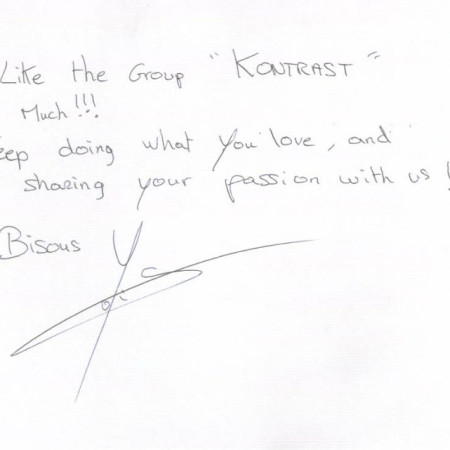 Like the Group "KONTRAST"
Much!!!
eep doing what you love, and
sharing your passion with us !
Bisous